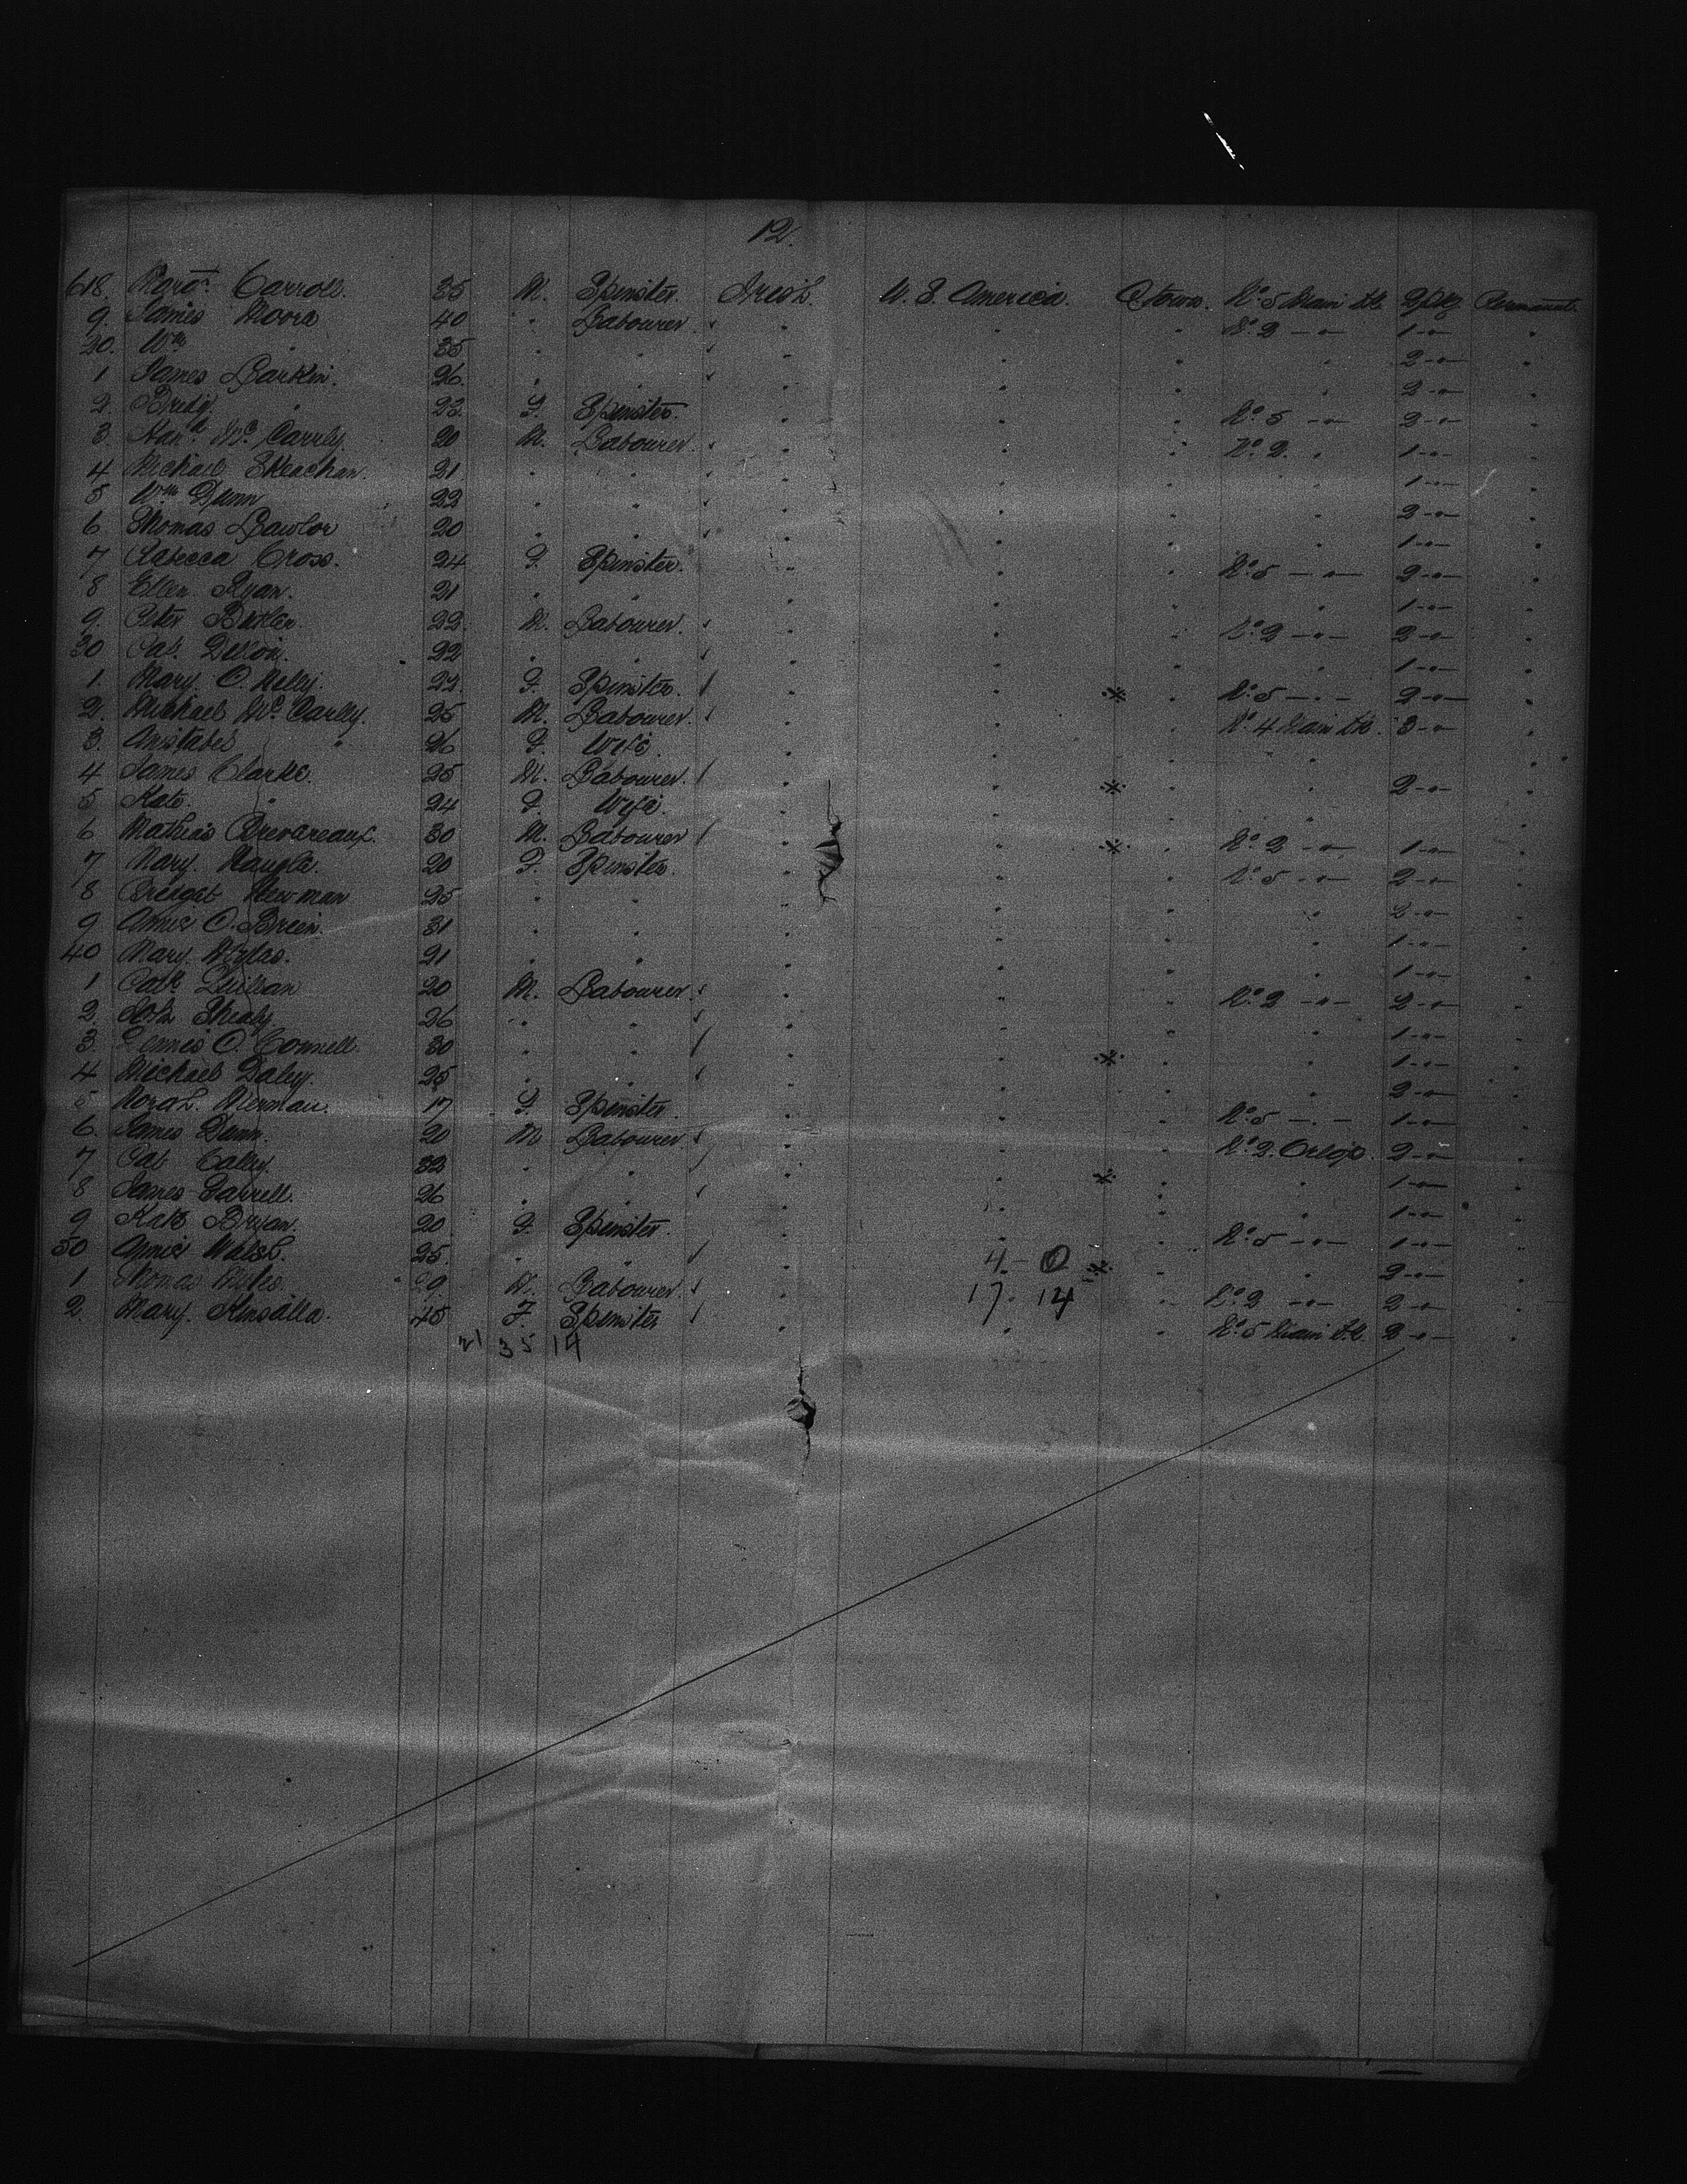 12.
618. Margt. Carroll. 35 M. Spinster. Irish. U. S. America. Qtown. No. 5 Main Dk. 2 pkg Permanent.
9. James Moore 40 " Labourer " " " No. 2 - " - 1 - " - "
20. Wm " 35 " " " " " " 2 - " - "
1 James Larkin. 26. " " " " " 2 - " - "
2. Bridg. " 23. F. Spinster. " " " No. 5 - " - 2 - " - "
3. Mc Carthy. 20 M. Labourer. " " " No. 2. " 1 - " - "
4 Michael Skeachan. 21. " " " " " 1 - " - "
5 Wm Dunn 22 " " " " " " 2 - " - "
6 Thomas Lawlor 20 " " " " " " 1 - " - "
7 Rebecca Cross. 24 F. Spinster. " " " No. 5 - " - 2 - " - "
8 Ellen Ryan. 21 " " " " " " 1 - " - "
9. Peter Butler. 22. M. Labourer. " " " No. 2 - " - 2 - " - "
30 Pat. 22 " " " " " " 1 - " - "
1. Mary. O. 22. F. Spinster. " " " No. 5 - " - 2 - " - "
2. Michael Mc. Carthy. 25 M. Labourer. " " " No. 4 Main Dk. 3 - " "
3. " 26 F. Wife. " " " " "
4 James Clarke. 25 M. Labourer. " " " " 2 - " - "
5 Kate. " 24 F. Wife. " " " " "
6. Mathias 30 M. Labourer " " " No. 2 - " - 1 - " - "
7 Mary. 20 F. Spinster. " " " No. 5 - " - 2 - " - "
8 Bridget Newman 25 " " " " " " 2 - " - "
9 Annie O. Brien. 31 " " " " " " 1 - " - "
40 Mary. 21 " " " " " " 1 - " - "
1 Patk. 20 M. Labourer. " " " No. 2 - " - 2 - " - "
2. 26 " " " " " " 1 - " - "
3. Dennis O. Connell. 30 " " " " " " 1 - " - "
4 Michael Daley. 25 " " " " " " 2 - " - "
5 Norah. 17 F. Spinster. " " " No. 5 - " - 1 - " - "
6. James Dunn. 20 M Labourer. " " " No. 2. Orlop. 2 - " - "
7 Pat 32 " " " " " " 1 - " - "
8 James Farrell. 26 " " " " " " 1 - " - "
9 Kate Bryan. 20 F. Spinster. " " " No. 5 - " - 1 - " - "
50 Annie Walsh. 25. " " " 4 - 0 " " 2 - " - "
1 Thomas 29. M. Labourer. " 17 - 14 " No. 2 - " - 2 - " - "
2. Mary. Kinsalla. 45 F. Spinster " " " No. 5 Main Dk. 2 - " - "
21 35 14